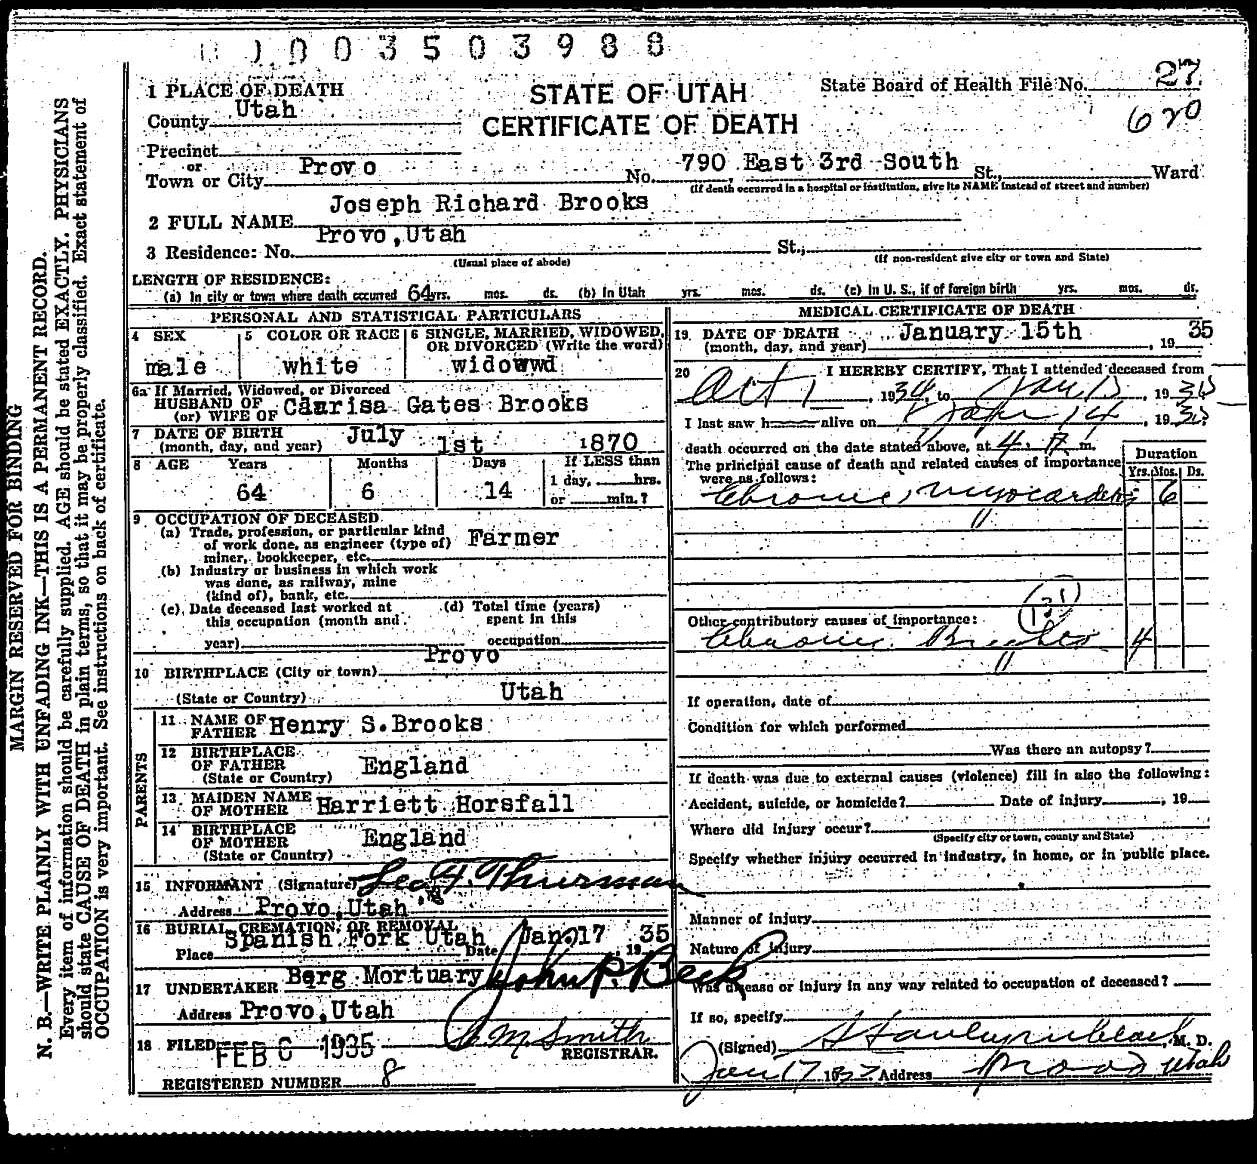 0003503988
1 PLACE OF DEATH
STATE OF UTAH
CERTIFICATE OF DEATH
State Board of Health File No. 27
620
County Utah
Precinct
or
Town or City Provo No. 790 East 3rd South St., Ward
(If death occurred in a hospital or institution, give its NAME instead of street and number)
2 FULL NAME Joseph Richard Brooks
3 Residence: No. Provo,Utah St.,
(Usual place of abode) (If non-resident give city or town and State)
LENGTH OF RESIDENCE:
(a) In city or town where death occurred 64 yrs. mos. ds. (b) In Utah yrs. mos. ds. (c) In U. S., if of foreign birth yrs. mos. ds.
PERSONAL AND STATISTICAL PARTICULARS
4 SEX 5 COLOR OR RACE 6 SINGLE, MARRIED, WIDOWED, OR DIVORCED (Write the word)
male white widowwd
6a If Married, Widowed, or Divorced
HUSBAND OF
(or) WIFE OF Clarrisa Gates Brooks
7 DATE OF BIRTH
(month, day, and year) July 1st 1870
8 AGE Years Months Days If LESS than
1 day, hrs.
64 6 14 or min.?
9 OCCUPATION OF DECEASED
(a) Trade, profession, or particular kind
of work done, as engineer (type of) Farmer
miner, bookkeeper, etc.
(b) Industry or business in which work
was done, as railway, mine
(kind of), bank, etc.
(c) Date deceased last worked at
this occupation (month and
year)
(d) Total time (years)
spent in this
occupation
10 BIRTHPLACE (City or town) Provo
(State or Country) Utah
PARENTS
11 NAME OF
FATHER Henry S.Brooks
12 BIRTHPLACE
OF FATHER England
(State or Country)
13 MAIDEN NAME
OF MOTHER Harriett Horsfall
14 BIRTHPLACE
OF MOTHER England
(State or Country)
15 INFORMANT (Signature) Leo T. Thurman
Address Provo,Utah
16 BURIAL, CREMATION, OR REMOVAL
Place Spanish Fork Utah Date Jan.17 , 19 35
17 UNDERTAKER Berg Mortuary John P. Beck
Address Provo,Utah
18 FILED FEB 6 1935 Smith
REGISTRAR.
REGISTERED NUMBER 8
MEDICAL CERTIFICATE OF DEATH
19 DATE OF DEATH
(month, day, and year) January 15th , 19 35
20 I HEREBY CERTIFY, That I attended deceased from
Oct 1 , 1934, to Jan 15 , 1935
I last saw h alive on Jan 14 , 1935
death occurred on the date stated above, at 4 P. m.
The principal cause of death and related causes of importance
were as follows:
Duration
Yrs. Mos. Ds.
Chronic Myocarditis 6
"
131
Other contributory causes of importance:
Chronic Brights 4
"
If operation, date of
Condition for which performed
Was there an autopsy?
If death was due to external causes (violence) fill in also the following:
Accident, suicide, or homicide? Date of injury , 19
Where did injury occur?
(Specify city or town, county and State)
Specify whether injury occurred in industry, in home, or in public place.
Manner of injury
Nature of injury
Was disease or injury in any way related to occupation of deceased?
If so, specify
(Signed) Stanley M. D.
Jan 17 Address Provo Utah
MARGIN RESERVED FOR BINDING
N. B.—WRITE PLAINLY WITH UNFADING INK—THIS IS A PERMANENT RECORD.
Every item of information should be carefully supplied. AGE should be stated EXACTLY. PHYSICIANS
should state CAUSE OF DEATH in plain terms, so that it may be properly classified. Exact statement of
OCCUPATION is very important. See instructions on back of certificate.